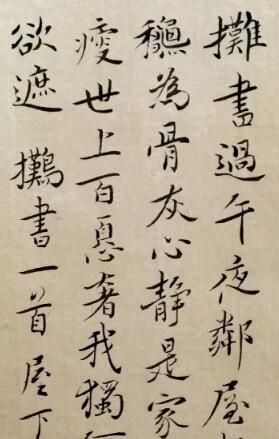 攤書過午夜鄰屋
為骨灰心静是家
瘦世上百愚奢我獨
欲遮 攤書一首屋下